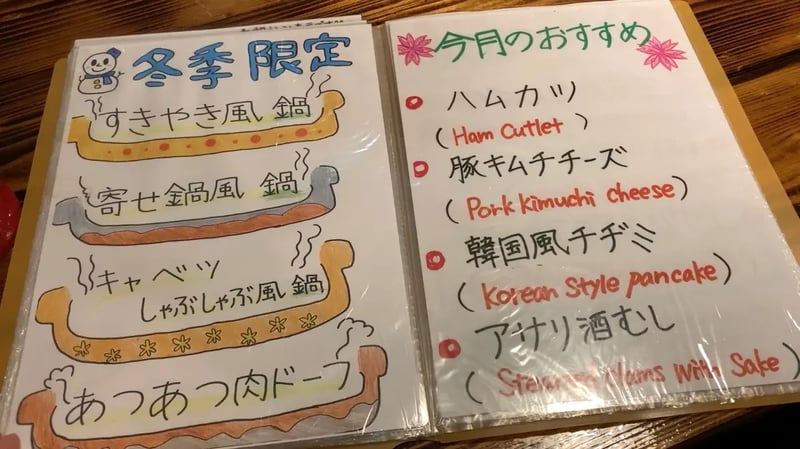 冬季限定
すきやき風鍋
寄せ鍋風鍋
キャベツ
しゃぶしゃぶ風鍋
あつあつ肉ドーフ
今月のおすすめ
ハムカツ
(Ham Cutlet)
豚キムチチーズ
(Pork kimuchi cheese)
韓国風チヂミ
(Korean Style pancake)
アサリ酒むし
(Steamed clams with Sake)